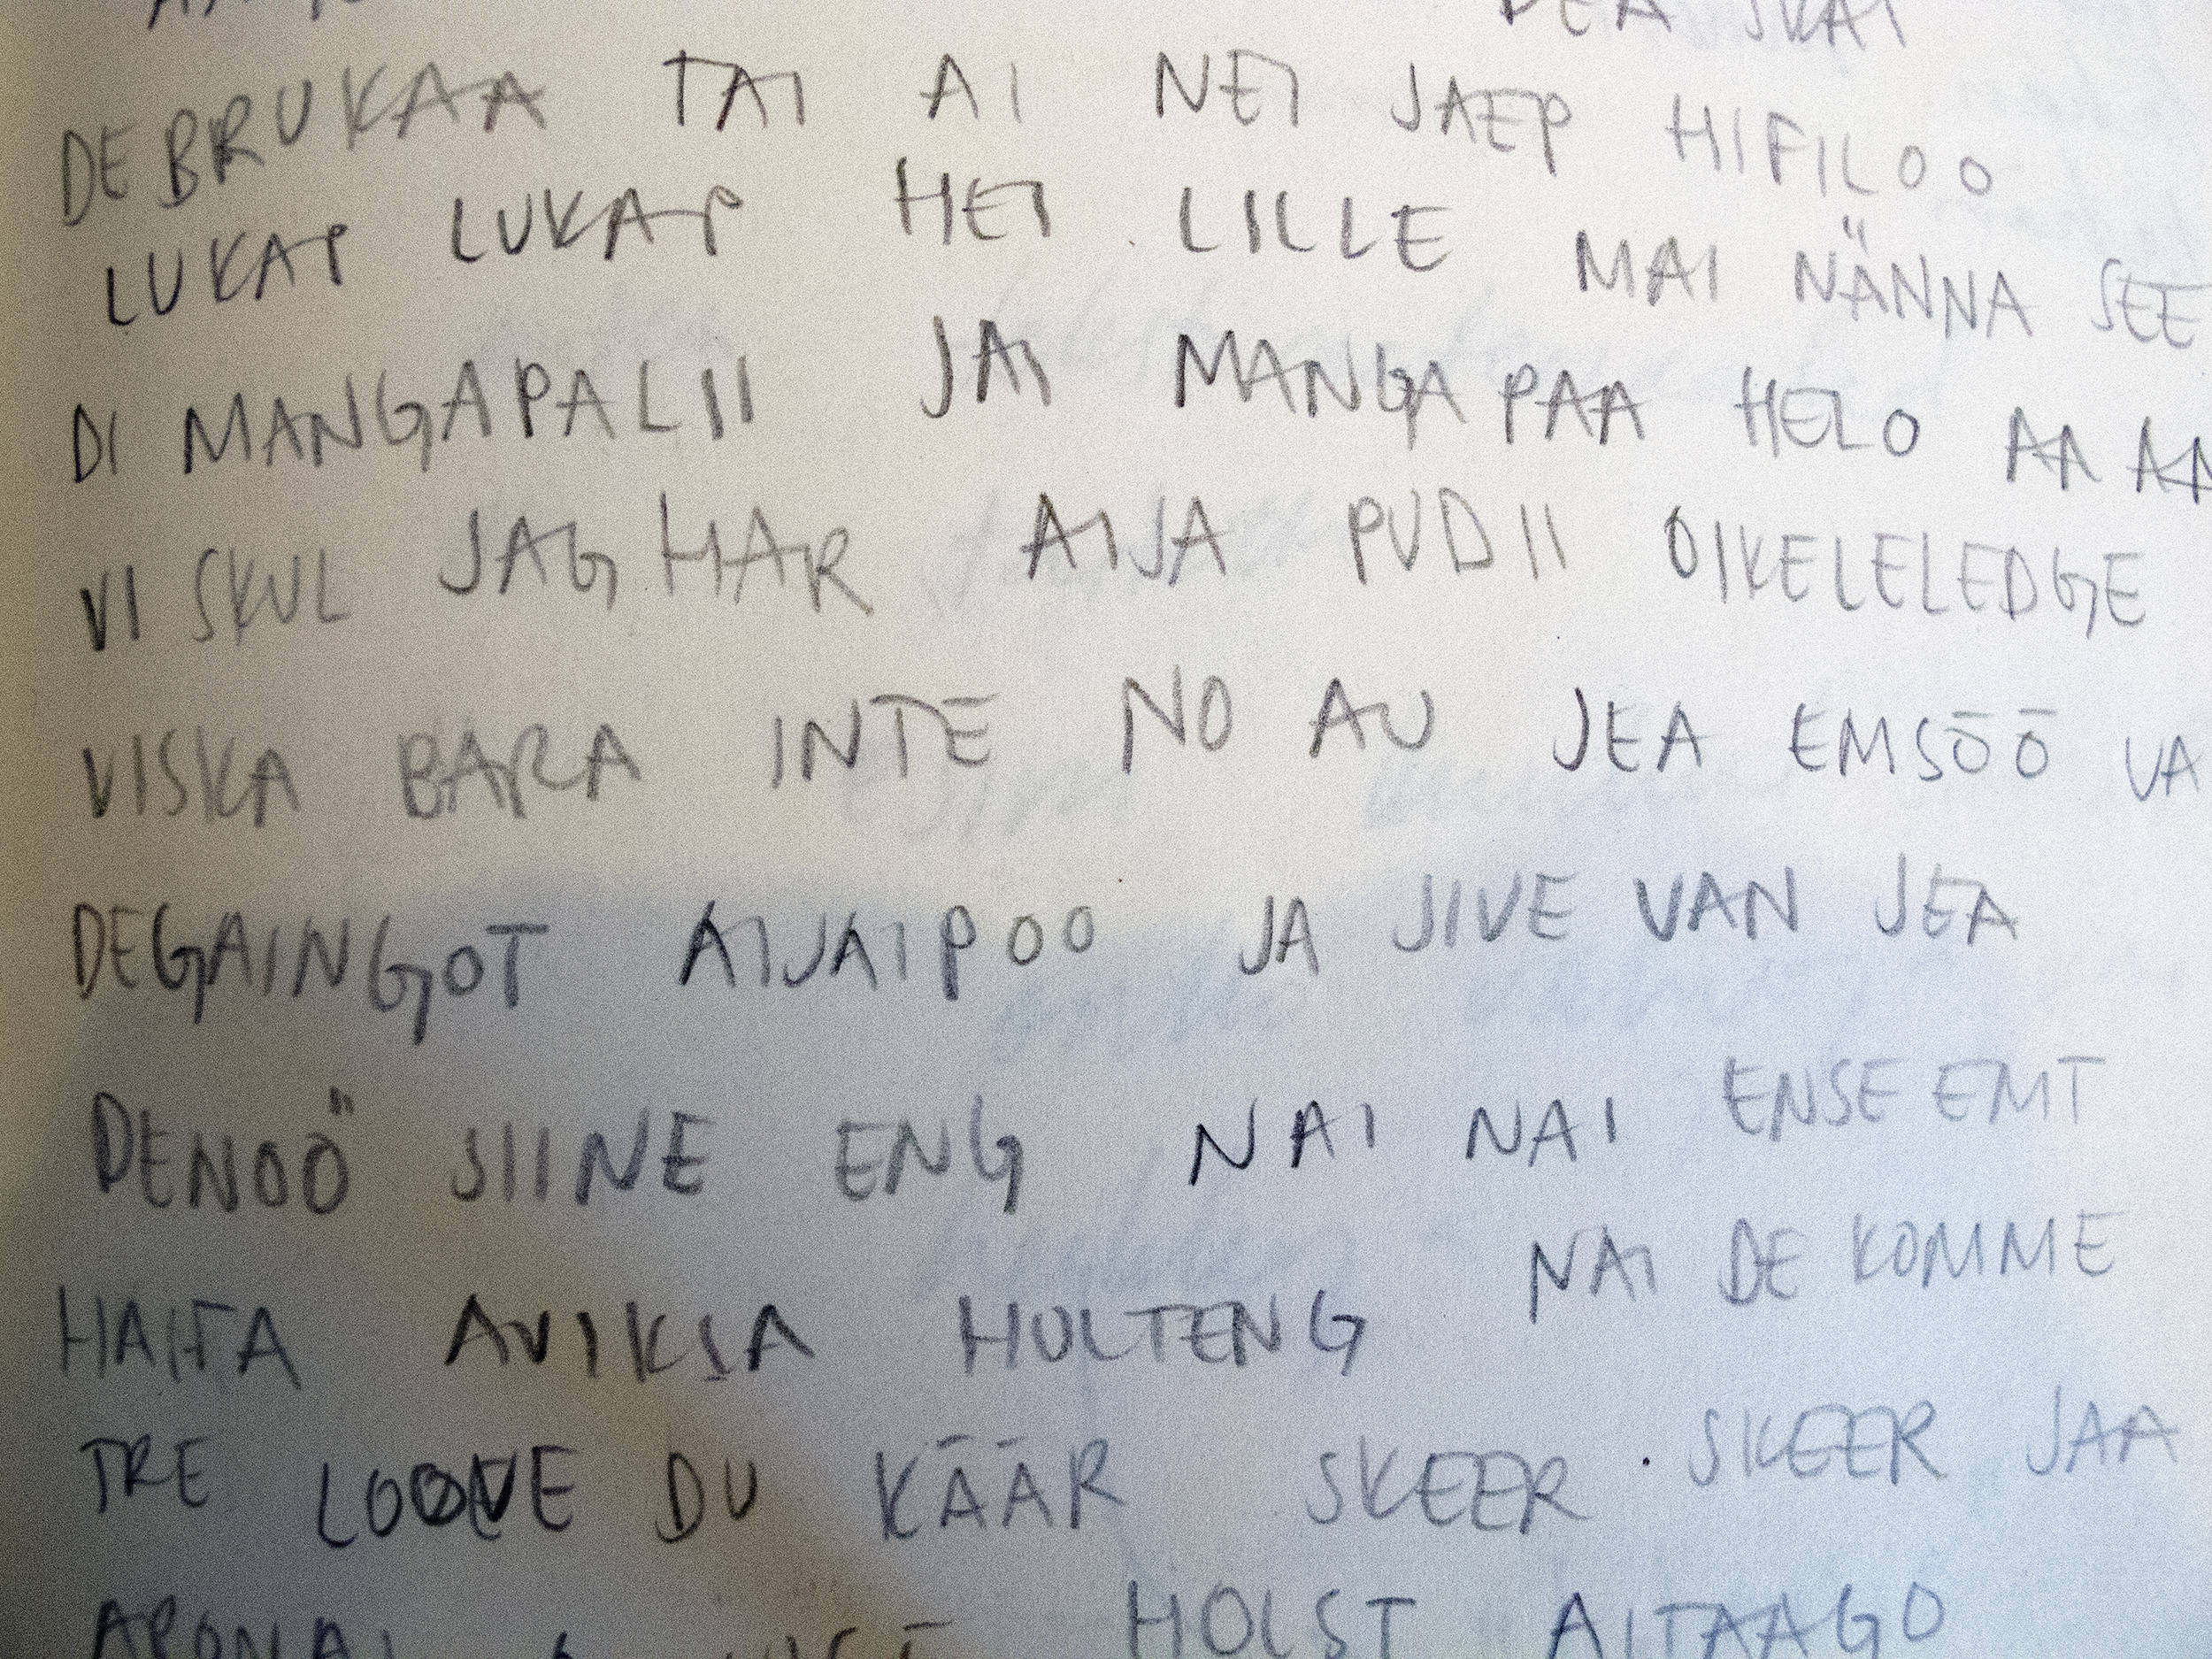 DEA SKAI
DEBRUKAA TAI AI NEI JAEP HIFILOO
LUKAP LUKAP HEI LILLE MAI NÄNNA SEE
DI MANGAPALII JAI MANGA PAA HELO AA AA
VI SKUL JAG HAR AIJA PUDII OIKELELEDGE
VISKA BARA INTE NO AU JEA EMSÖÖ VA
DEGAINGOT AIJAIPOO JA JIVE VAN JEA
DENOÖ SIINE ENG NAI NAI ENSE EMT
HAIFA AVIKIA HULTENG NAI DE KOMME
TRE DU KÄÄR SKEER SKEER JAA
HOLST AITAAGO